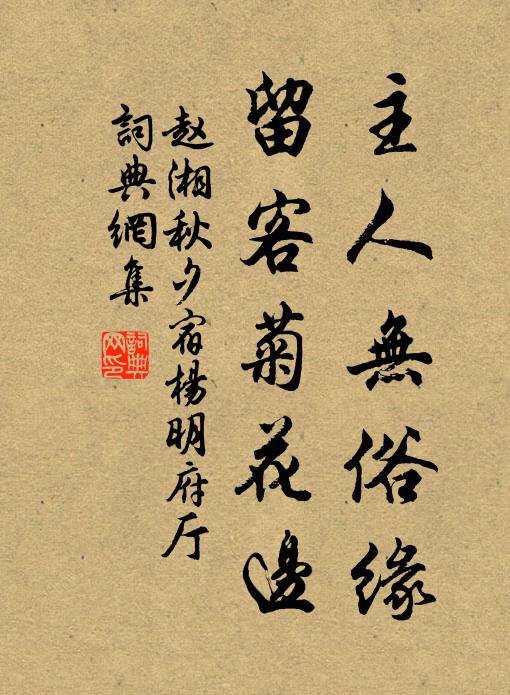 主人無俗緣
留客菊花邊
赵湘秋夕宿楊明府厅
詞典網集
詞典
网印